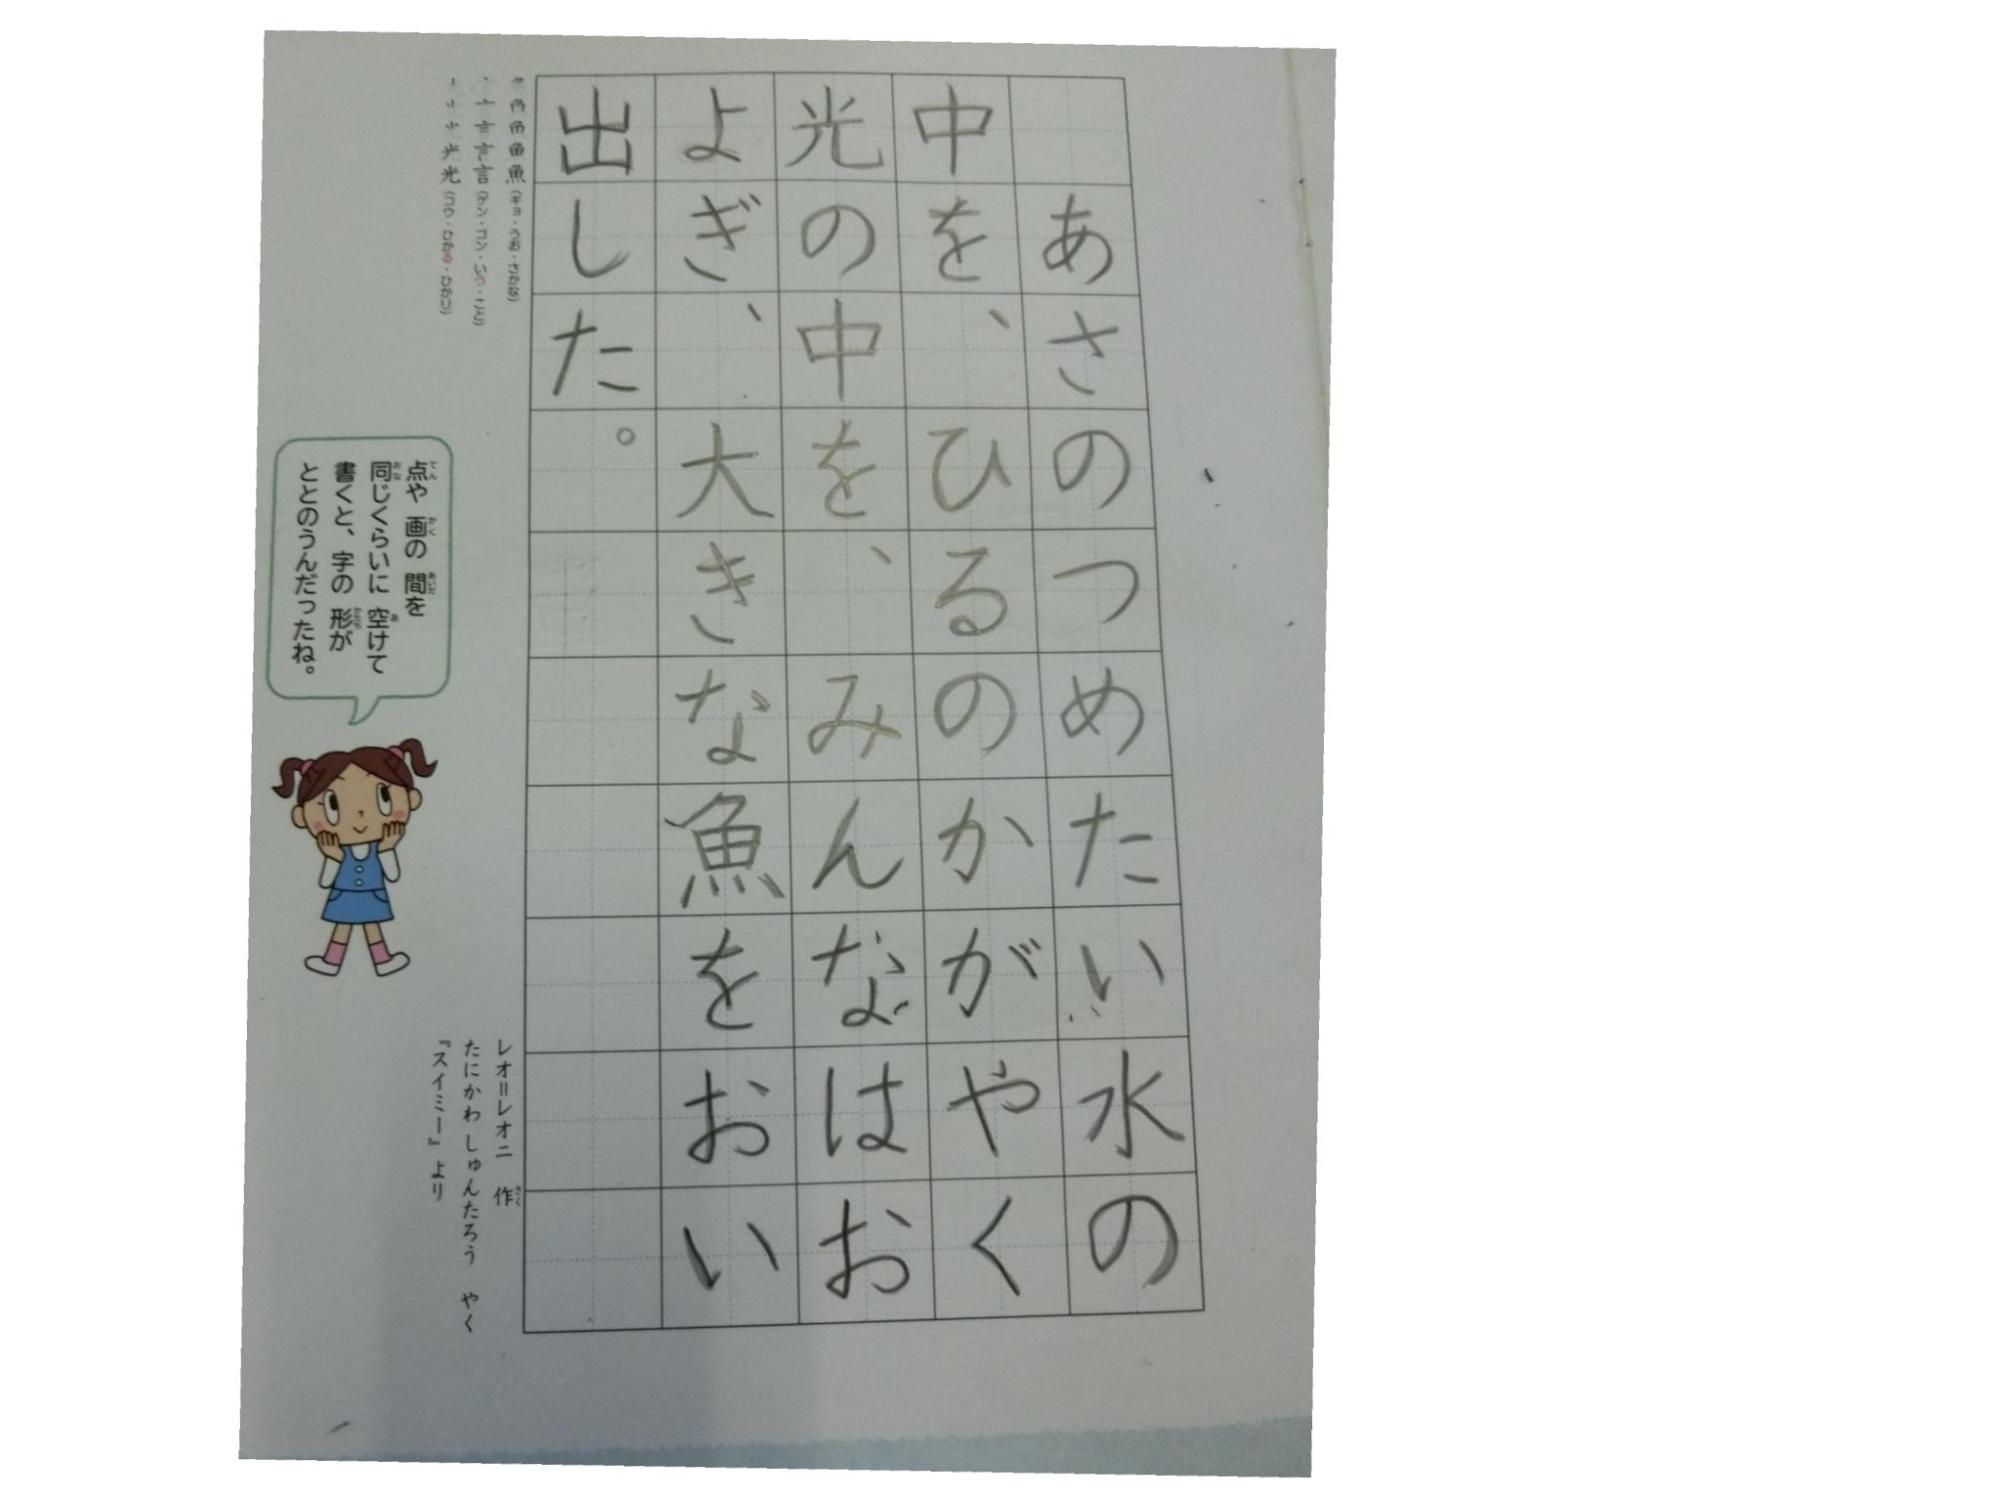 あさのつめたい水の
中を、ひるのかがやく
光の中を、みんなはお
よぎ、大きな魚をおい
出した。
魚(ギョ・うお・さかな)
言(ゲン・ゴン・いう・こと)
光(コウ・ひかる・ひかり)
点や 画の 間を
同じくらいに 空けて
書くと、字の 形が
ととのうんだったね。
レオ=レオニ 作
たにかわ しゅんたろう やく
『スイミー』より